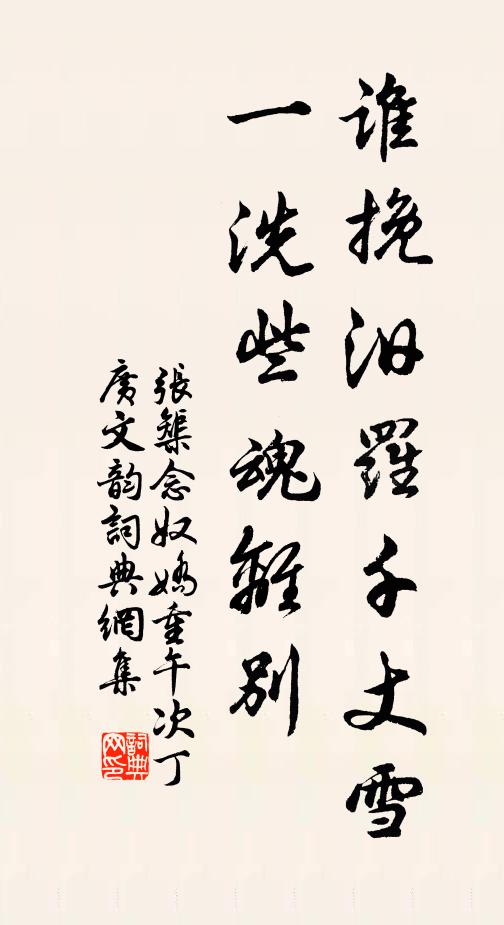 誰挽汨羅千丈雪
一洗些魂離別
張榘念奴嬌重午次丁
廣文韵詞典網集
詞典
网印